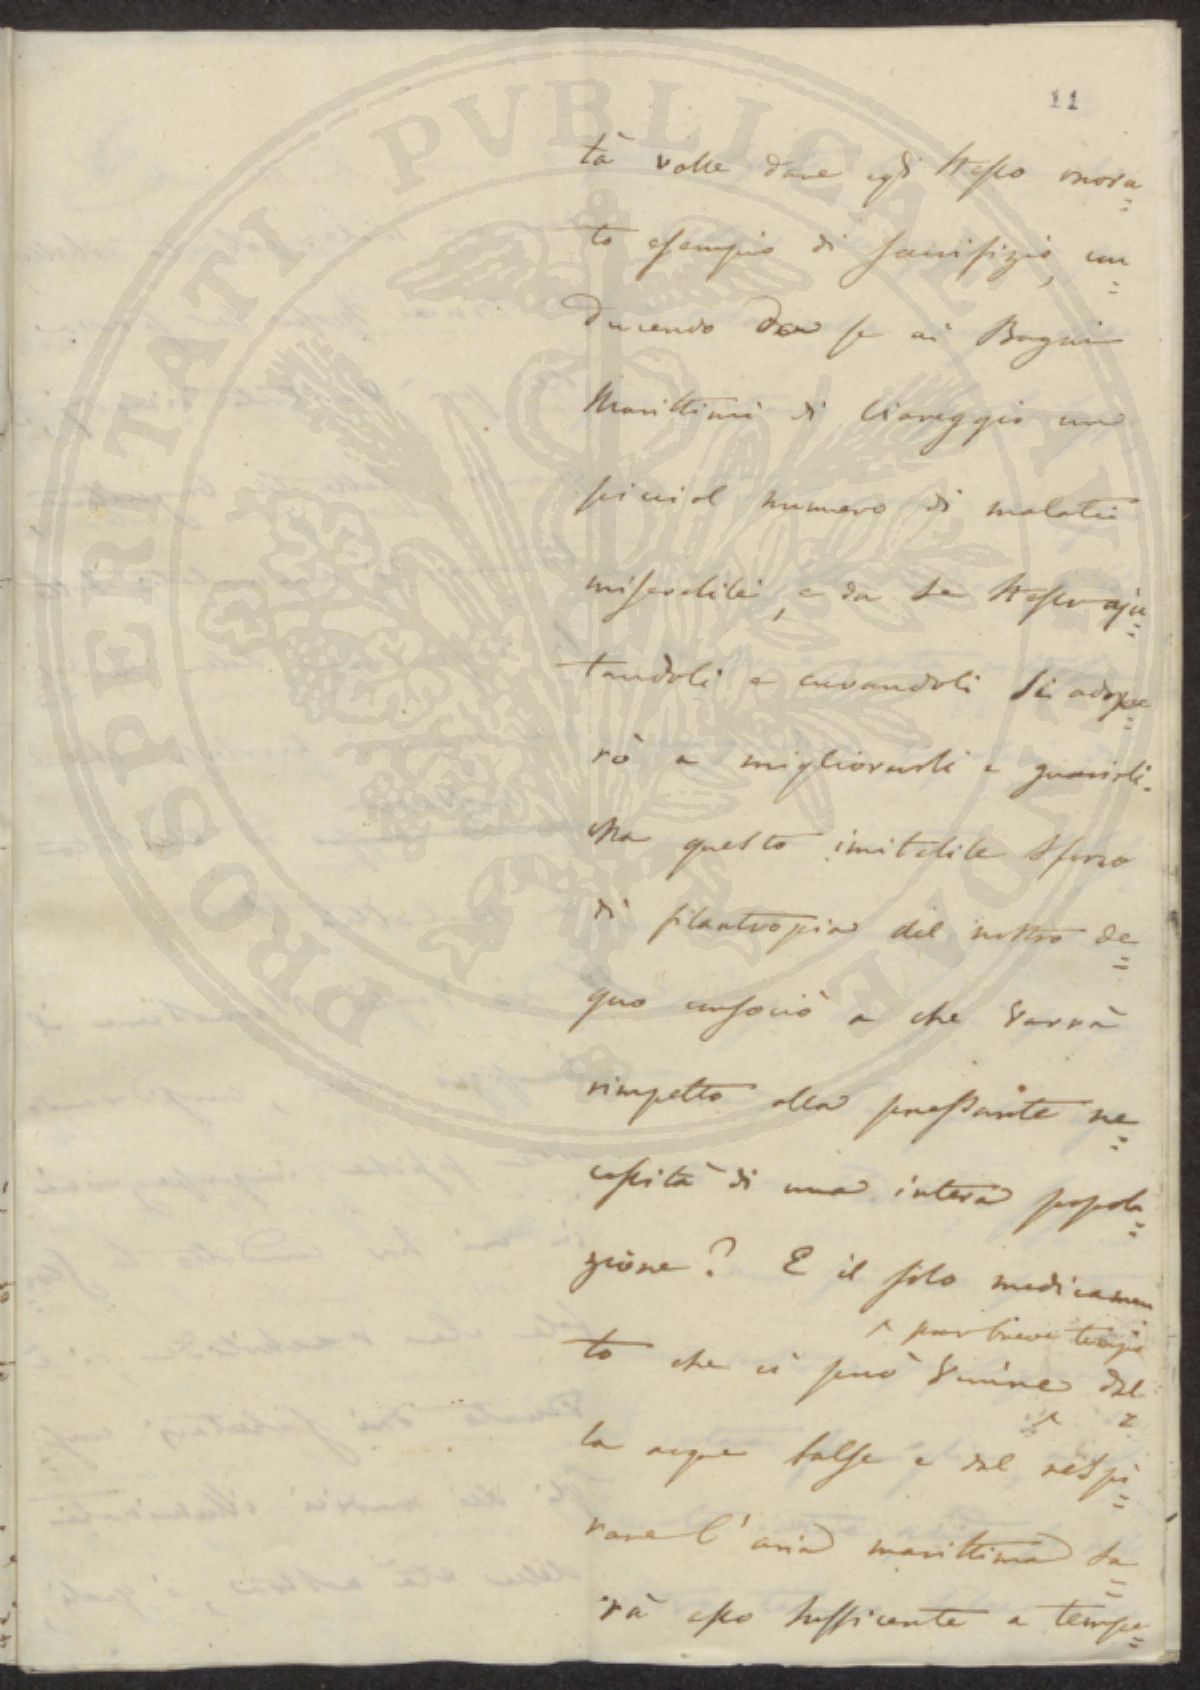 11
PROSPERITATI PVBLICAE AVGENDAE
tà volle dare egli stesso onora=
to esempio di sacrifizio, con=
ducendo da se ai Bagni
Marittimi di Viareggio un
picciol numero di malati
miserabili, e da se stesso aju=
tandoli e curandoli si adope=
rò a migliorarli e guarirli.
Ma questo imitabile sforzo
di filantropia del nostro de=
gno consocio a che varrà
rimpetto alla pressante ne=
cessità di una intera popola=
zione? E il solo medicamen
^ per breve tempo
to che ci può venire ^ dal=
la acque salse e dal respi=
rare l'aria marittima sa=
rà esso sufficente a tempe=